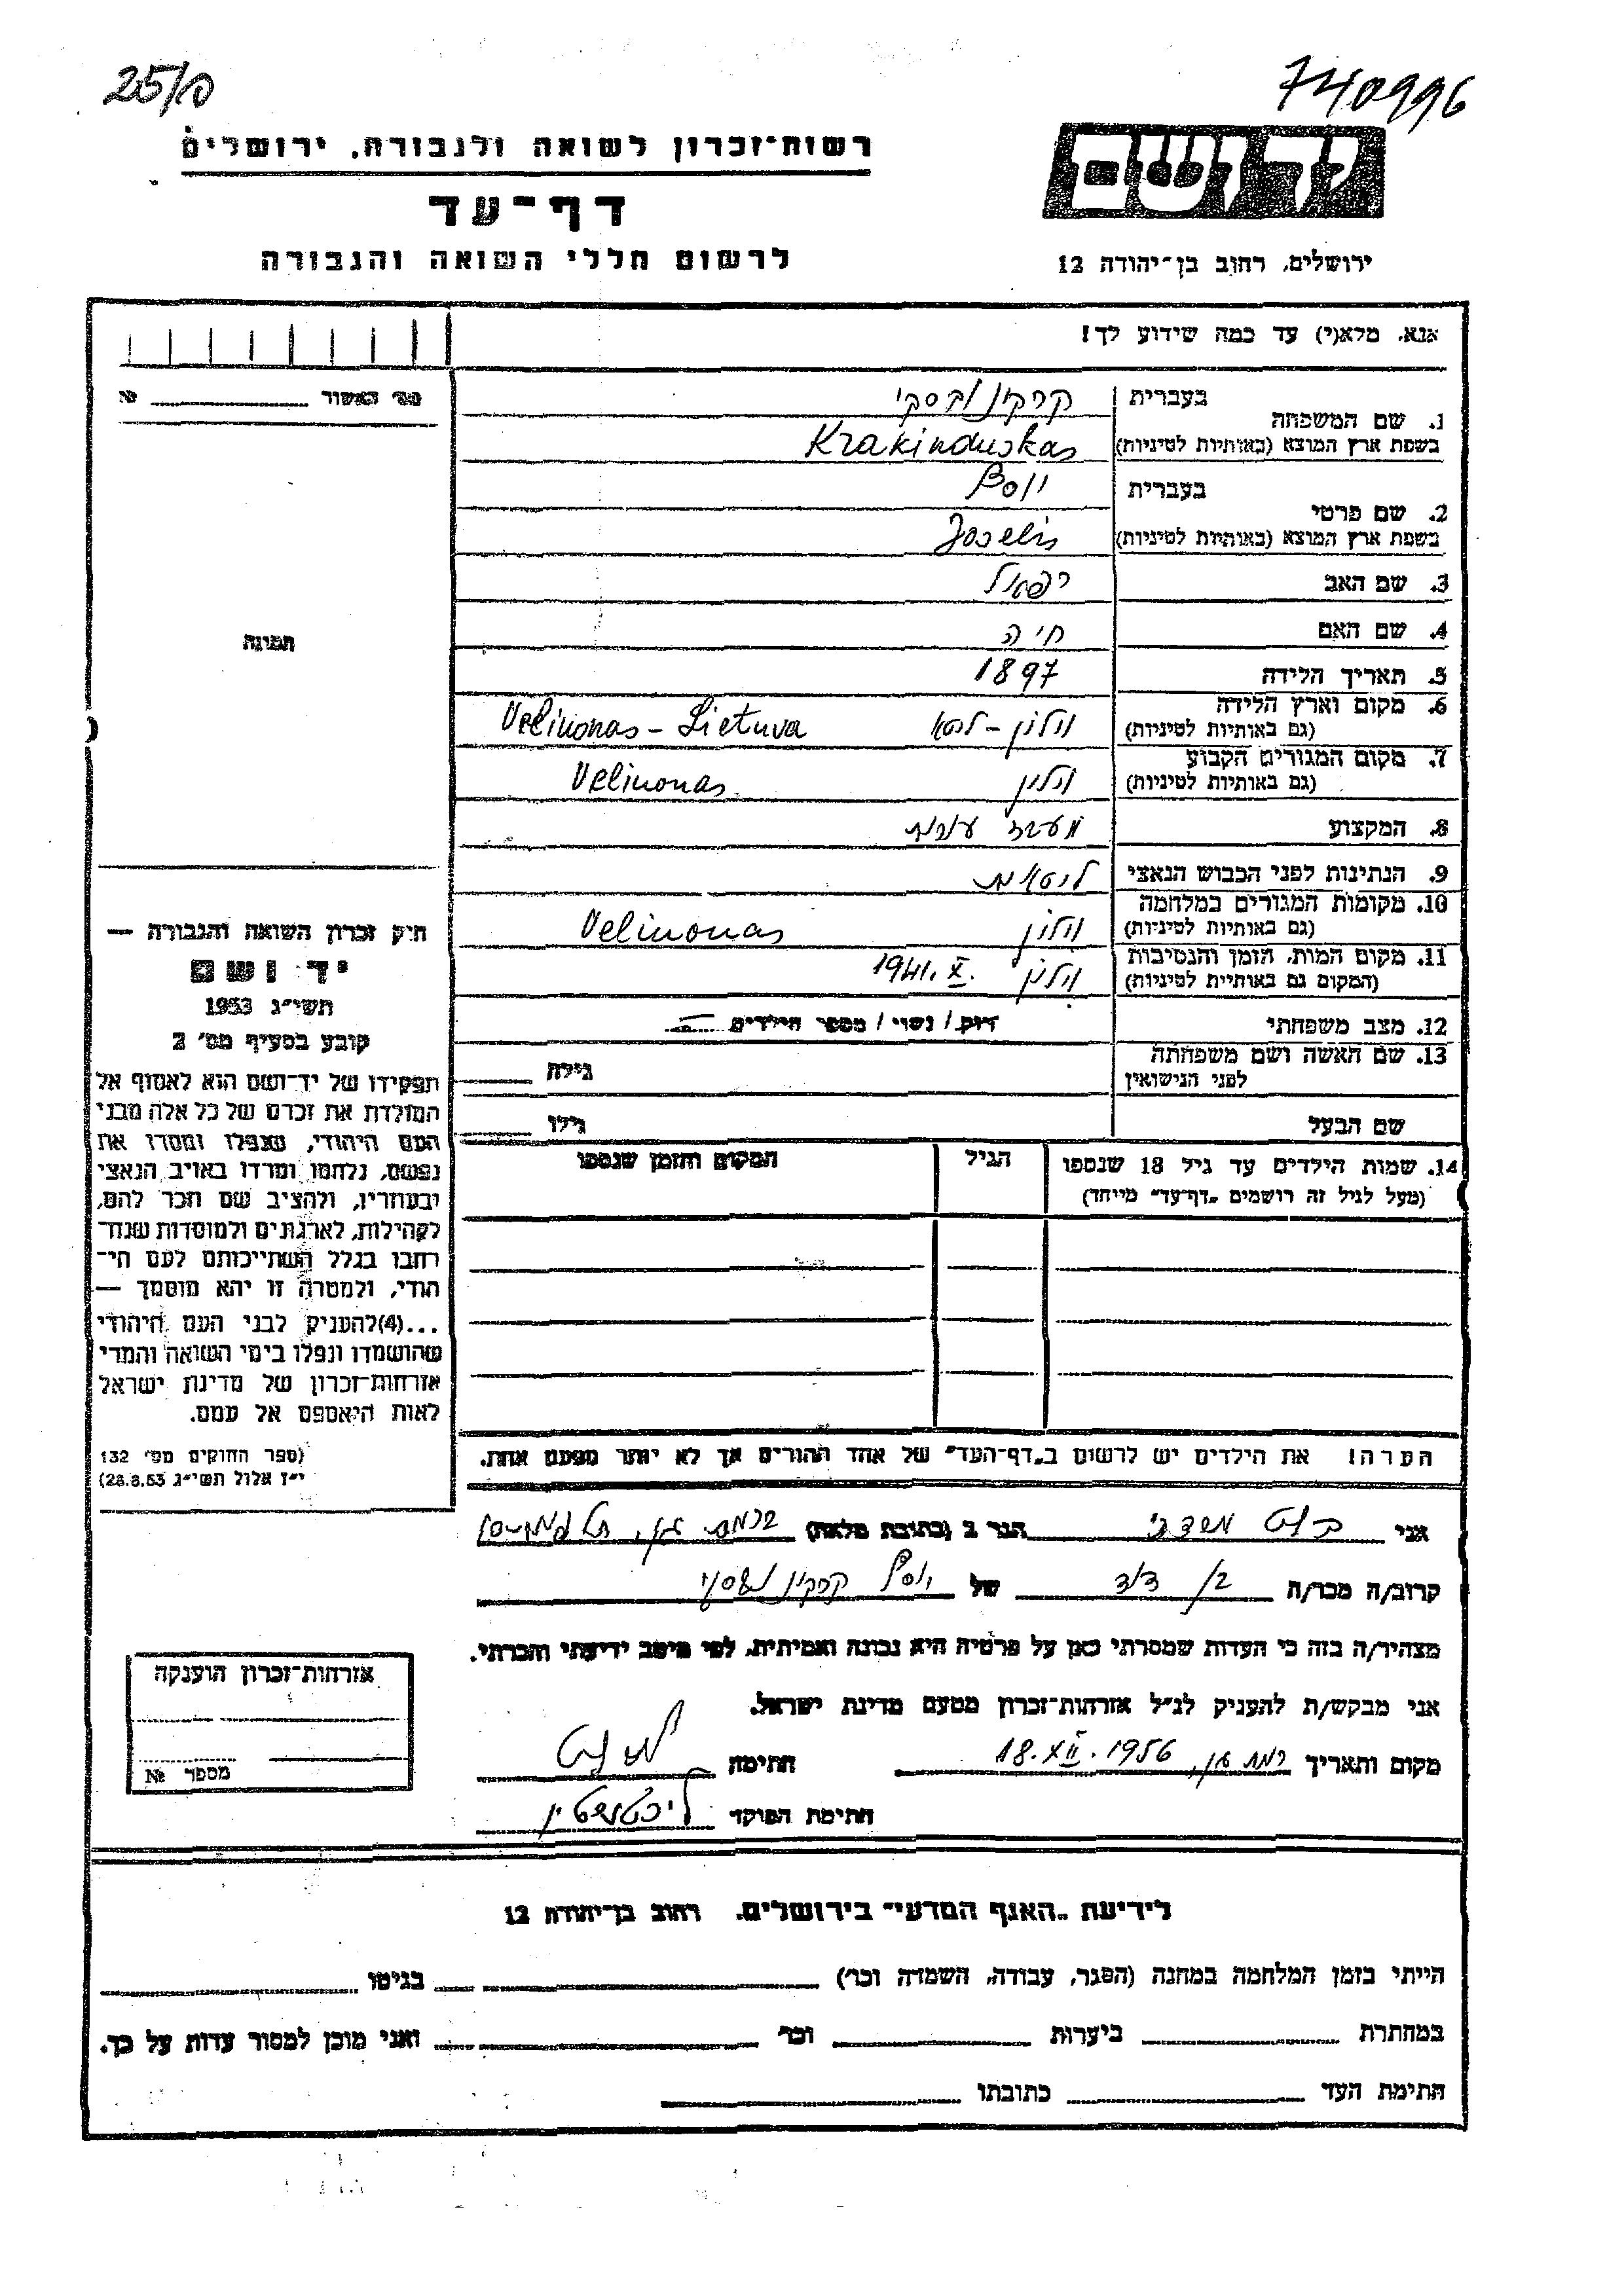 25/פ
740996
רשות־זכרון לשואה ולגבורה, ירושלים
יד ושם
דף־עד
לרשום חללי השואה והגבורה
ירושלים, רחוב בן־יהודה 12
אנא, מלא(י) עד כמה שידוע לך!
מס' האשור № 
1. שם המשפחה
בעברית
בשפת ארץ המוצא (באותיות לטיניות) Krakinduskas
2. שם פרטי
בעברית יוסף
בשפת ארץ המוצא (באותיות לטיניות) Joselis
3. שם האב רפאל
4. שם האם חיה
5. תאריך הלידה 1897
6. מקום וארץ הלידה
(גם באותיות לטיניות) וילון - ליטא Veliuonas - Lietuva
7. מקום המגורים הקבוע
(גם באותיות לטיניות) וילון Veliuonas
8. המקצוע
9. הנתינות לפני הכבוש הנאצי ליטאית
10. מקומות המגורים במלחמה
(גם באותיות לטיניות) וילון Veliuonas
11. מקום המות, הזמן והנסיבות
(המקום גם באותיות לטיניות) וילון 1941.X.
12. מצב משפחתי רווק / נשוי / מספר הילדים
13. שם האשה ושם משפחתה
לפני הנישואין גילה
שם הבעל גילו
14. שמות הילדים עד גיל 18 שנספו
(מעל לגיל זה רושמים „דף־עד" מיוחד)
הגיל
המקום והזמן שנספו
הערה! את הילדים יש לרשום ב„דף־העד" של אחד ההורים אך לא יותר מפעם אחת.
תמונה
חוק זכרון השואה והגבורה —
יד ושם
תשי"ג 1953
קובע בסעיף מס' 2
תפקידו של יד־ושם הוא לאסוף אל
המולדת את זכרם של כל אלה מבני
העם היהודי, שנפלו ומסרו את
נפשם, נלחמו ומרדו באויב הנאצי
ובעוזריו, ולהציב שם וזכר להם,
לקהילות, לארגונים ולמוסדות שנח־
רבו בגלל השתייכותם לעם הי־
הודי, ולמטרה זו יהא מוסמך —
...(4)להעניק לבני העם היהודי
שהושמדו ונפלו בימי השואה והמרי
אזרחות־זכרון של מדינת ישראל
לאות היאספם אל עמם.
(ספר החוקים מס' 132
י"ז אלול תשי"ג 28.8.53)
אני הגר ב (כתובת מלאה)
קרוב/ה מכר/ה בן דוד של יוסף
מצהיר/ה בזה כי העדות שמסרתי כאן על פרטיה היא נכונה ואמיתית, לפי מיטב ידיעתי והכרתי.
אני מבקש/ת להעניק לנ"ל אזרחות־זכרון מטעם מדינת ישראל.
מקום ותאריך רמת גן, 18.XII.1956 חתימה
חתימת הפוקד ליכטנשטין
אזרחות־זכרון הוענקה
מספר №
לידיעת „האגף המדעי" בירושלים, רחוב בן־יהודה 12
הייתי בזמן המלחמה במחנה (הסגר, עבודה, השמדה וכו') בגיטו
במחתרת ביערות וכו' ואני מוכן למסור עדות על כך.
חתימת העד כתובתו